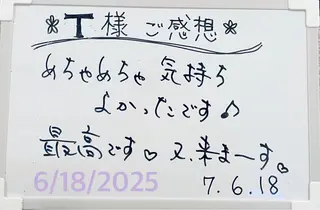 *T様 ご感想*
めちゃめちゃ 気持ち
よかったです♪
最高です♡ 又、来まーす♡
6/18/2025
7.6.18